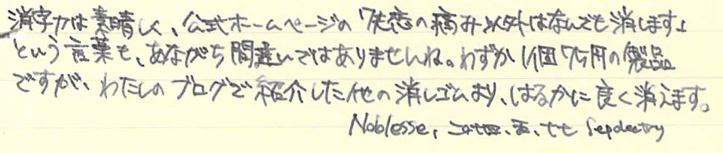 消字力は素晴しく、公式ホームページの「失恋の痛み以外はなんでも消します」
という言葉も、あながち間違いではありませんね。わずか1個75円の製品
ですが、わたしのブログで紹介した他の消しゴムより、はるかに良く消えます。
Noblesse,